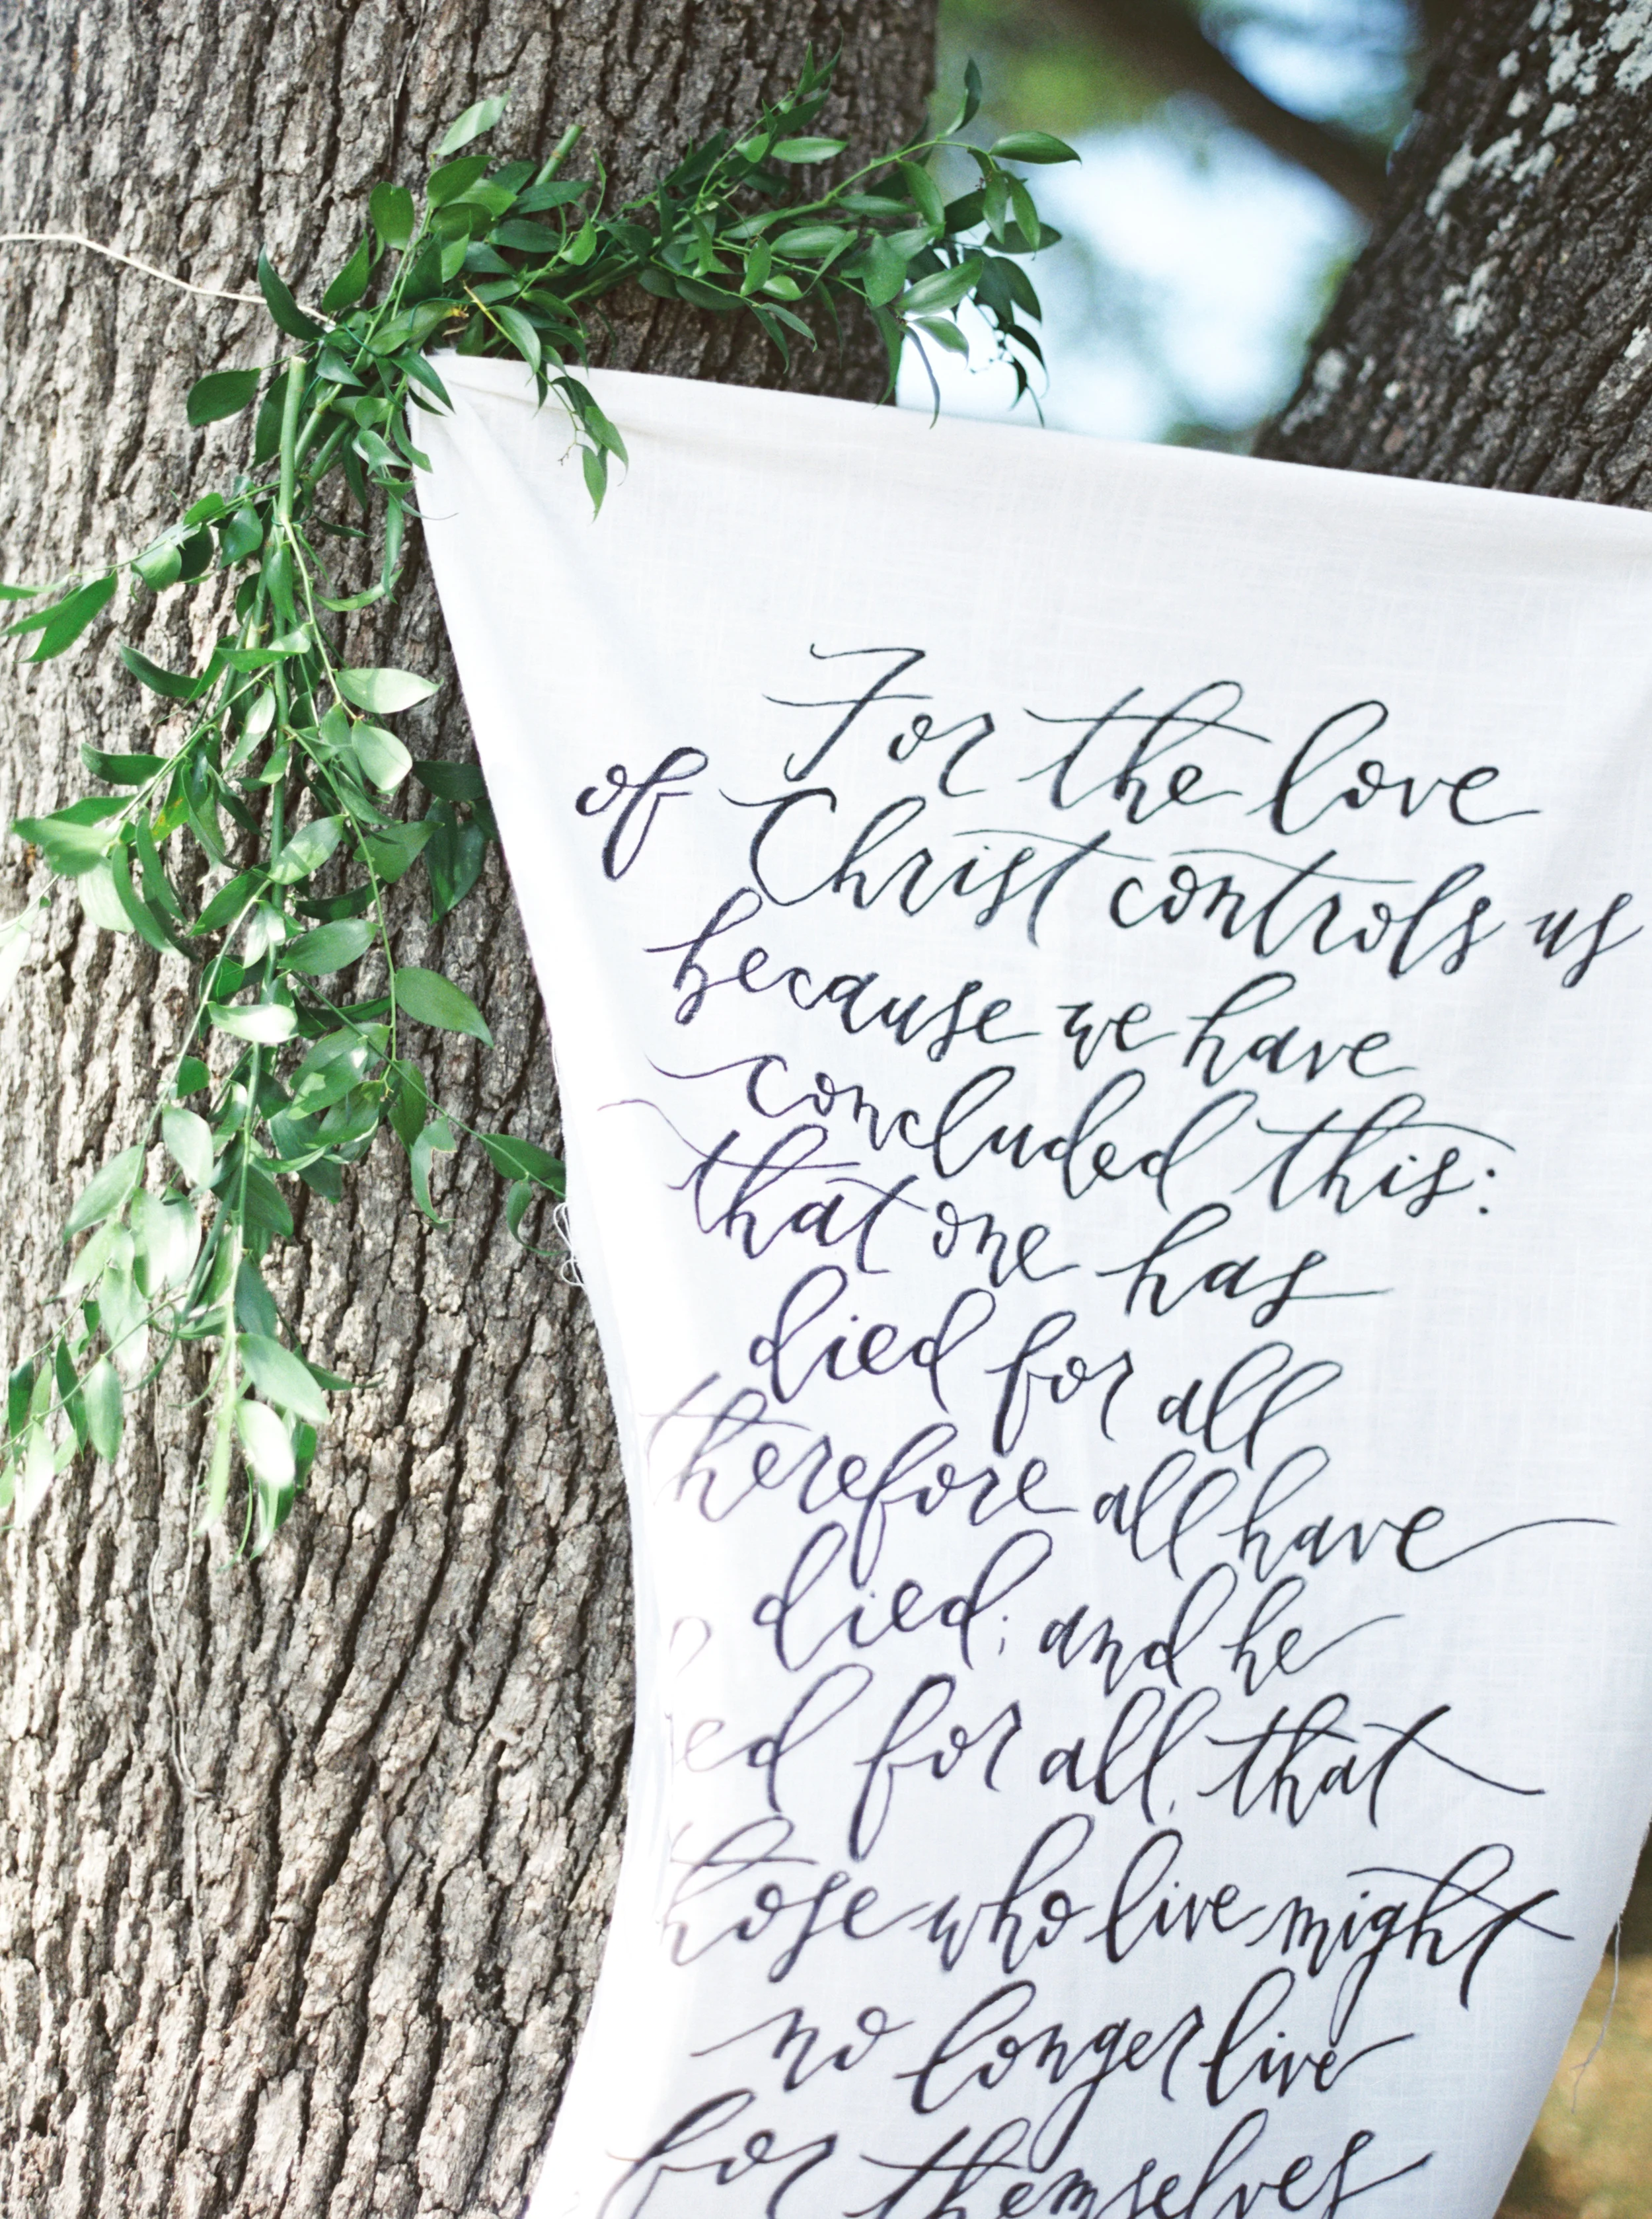 For the love
of Christ controls us
because we have
concluded this:
that one has
died for all
therefore all have
died; and he
ed for all, that
those who live might
no longer live
for themselves